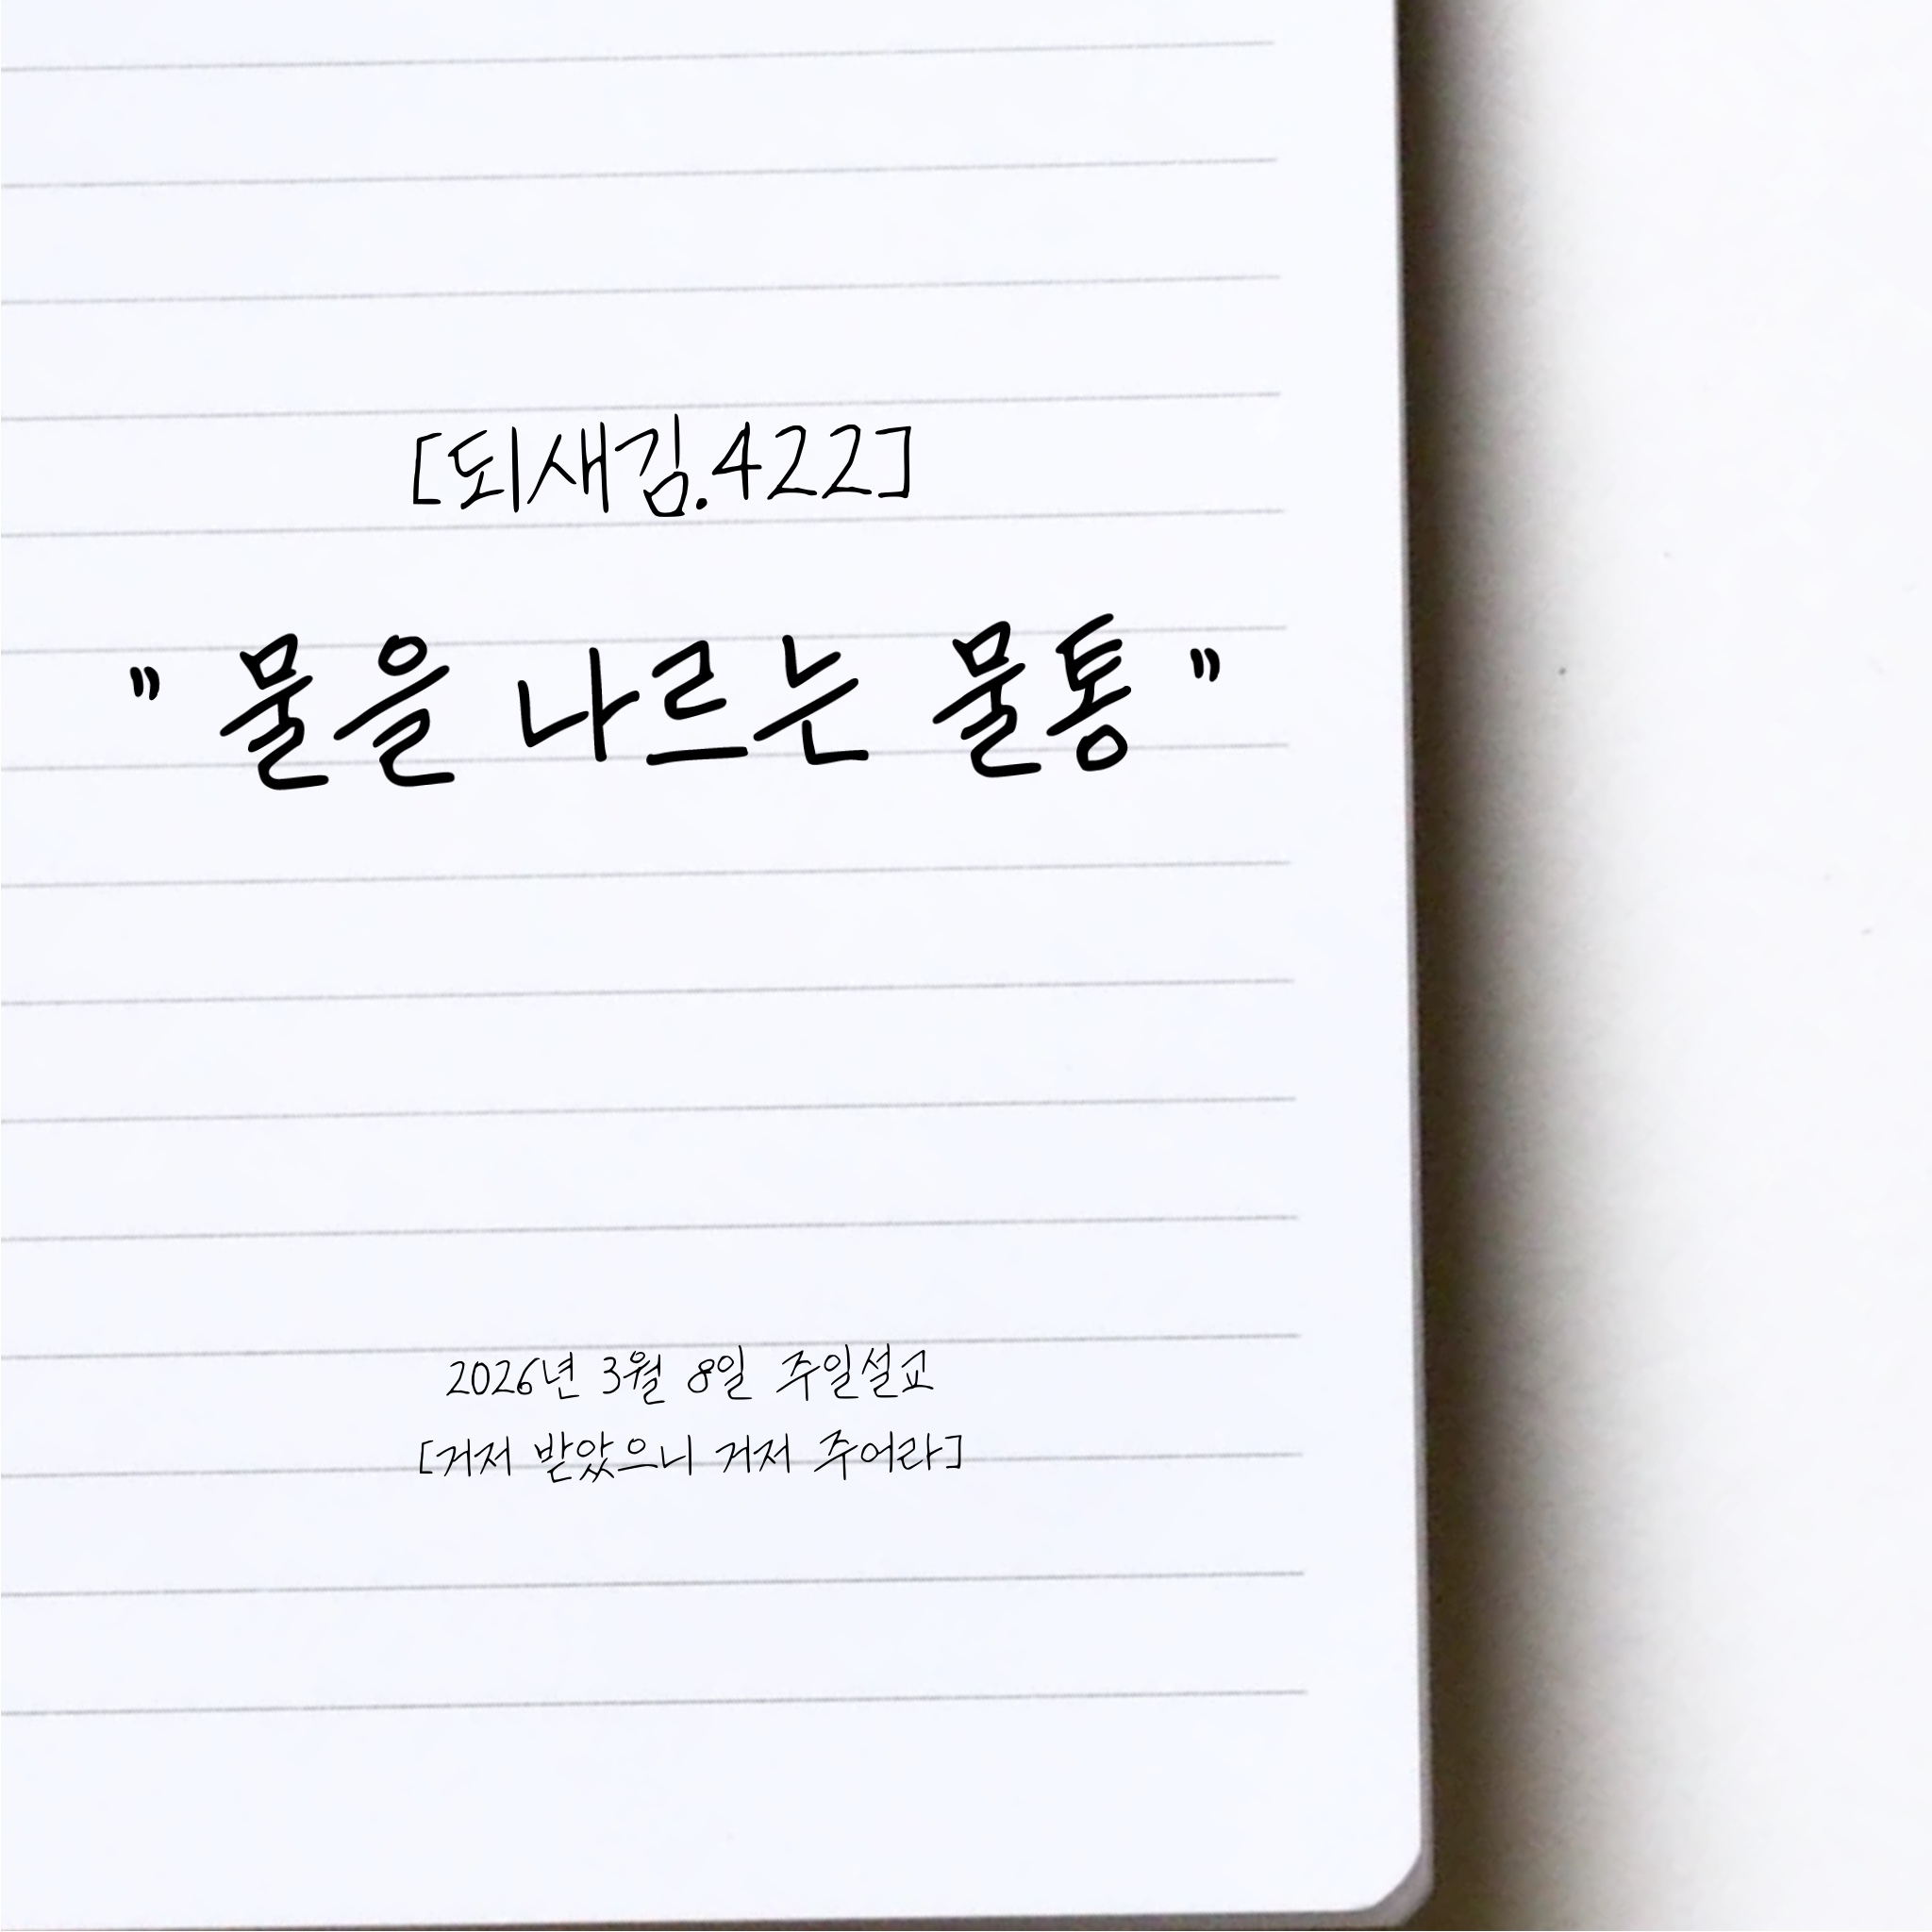 [되새김.422]
" 물을 나르는 물통 "
2026년 3월 8일 주일설교
[거저 받았으니 거저 주어라]